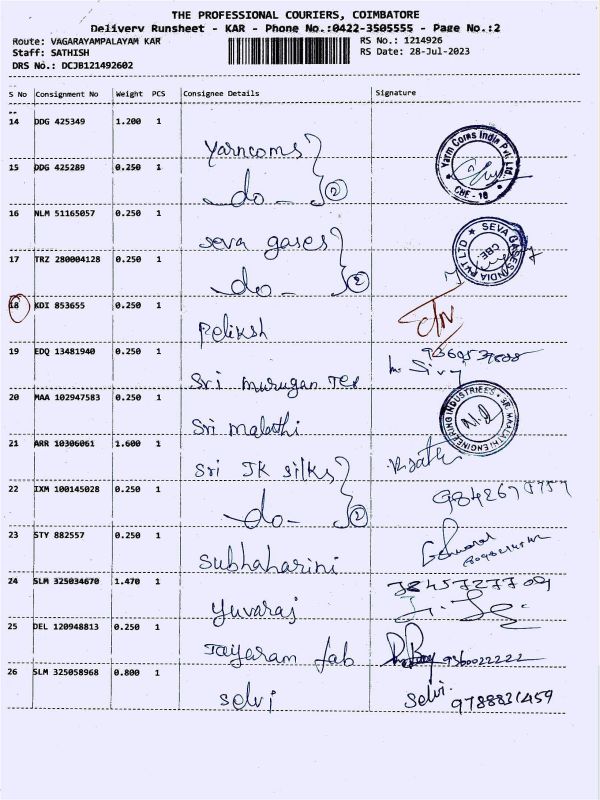 THE PROFESSIONAL COURIERS, COIMBATORE
Delivery Runsheet - KAR - Phone No.:0422-3505555 - Page No.:2
Route: VAGARAYAMPALAYAM KAR RS No.: 1214926
Staff: SATHISH RS Date: 28-Jul-2023
DRS No.: DCJB121492602
S No Consignment No Weight PCS Consignee Details Signature
14 DDG 425349 1.200 1 Yarncoms
Yarn Coms India Pvt Ltd.
CBE - 10
15 DDG 425289 0.250 1 do - 2
16 NLM 51165057 0.250 1 Seva gases
SEVA GASES INDIA PVT LTD
CBE.
17 TRZ 280004128 0.250 1 do - 2
18 KDI 853655 0.250 1 Reliksh
19 EDQ 13481940 0.250 1 Sri murugan Tex
20 MAA 102947583 0.250 1 Sri malathi
SRI MALATHI ENGINEERING INDUSTRIEES
21 ARR 10306061 1.600 1 Sri JK silks
22 IXM 100145028 0.250 1 do - 2
23 STY 882557 0.250 1 Subhaharini
24 SLM 325034670 1.470 1 Yuvaraj
25 DEL 120948813 0.250 1 Jayaram fab 9360022222
26 SLM 325058968 0.800 1 Selvi Selvi. 9788831459